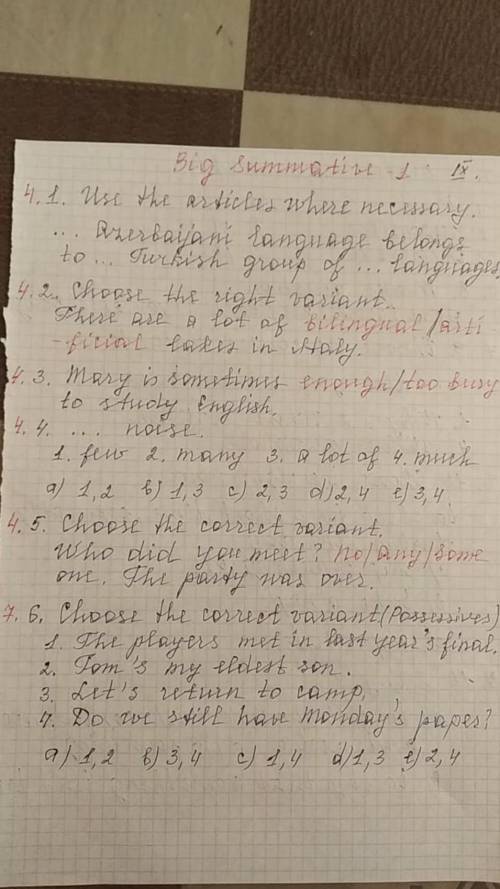 Big Summative 1 IX.
4. 1. Use the articles where necessary.
... Azerbaijani language belongs
to ... Turkish group of ... languages.
4. 2. Choose the right variant.
There are a lot of bilingual/arti
-ficial lakes in Italy.
4. 3. Mary is sometimes enough/too busy
to study English.
4. 4. ... noise.
1. few 2. many 3. a lot of 4. much
a) 1,2 b) 1,3 c) 2,3 d) 2,4 e) 3,4
4. 5. Choose the correct variant.
Who did you meet? No/any/some
one. The party was over.
7. 6. Choose the correct variant (Possessives)
1. The players met in last year's final.
2. Tom's my eldest son.
3. Let's return to camp.
4. Do we still have Monday's paper?
a) 1,2 b) 3,4 c) 1,4 d) 1,3 e) 2,4